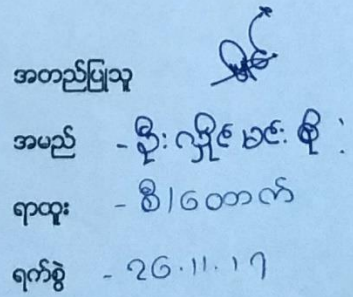 အတည်ပြုသူ
အမည် - ဦးလှိုင်မင်းစိုး
ရာထူး - စီ/ထောက်
ရက်စွဲ - ၂၆.၁၁.၁၇